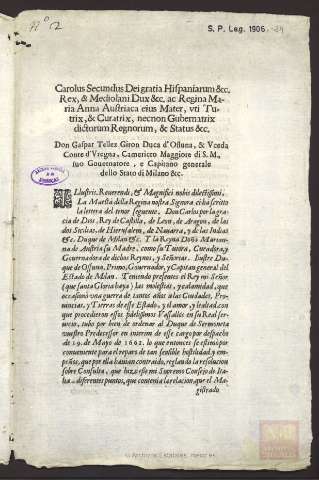 Nº 2
S. P. Leg. 1906,
Carolus Secundus Dei gratia Hispaniarum &c.
Rex, & Mediolani Dux &c. ac Regina Ma-
ria Anna Austriaca eius Mater, vti Tu-
trix, & Curatrix, necnon Gubernatrix
dictorum Regnorum, & Status &c.
Don Gaspar Tellez Giron Duca d'Ossuna, & Vceda
Conte d'Vregna, Cameriero Maggiore di S.M.,
suo Gouernatore, e Capitano generale
dello Stato di Milano &c.
Illustris, Reuerendi, & Magnifici nobis dilectissimi.
La Maestà della Regina nostra Signora ci ha scritto
la lettera del tenor seguente. Don Carlos por la gra-
cia de Dios, Rey de Castilla, de Leon, de Aragon, de las
dos Sicilias, de Hierusalem, de Nauarra, y de las Indias
&c. Duque de Milan &c. Y la Reyna Doña Marian-
na de Austria su Madre, como su Tutora, Curadora, y
Gouernadora de dichos Reynos, y Señorias. Ilustre Du-
que de Ossuno, Primo, Gouernador, y Capitan general del
Estado de Milan. Teniendo presentes el Rey mi Señor
(que santa Gloria haya) las molestias, y calamidad, que
occasionò vna guerra de tantos años a las Ciudades, Pro-
uincias, y Tierras de esse Estado, y el amor, y lealtad con
que procedieron essos fidelissimos Vassallos en su Real ser-
uicio, tubo por bien de ordenar al Duque de Sermoneta
vuestro Predecessor en interim de esse cargo por despacho
de 19. de Mayo de 1662. lo que entonces se estimò por
conueniente para el reparo de tan sensible hostilidad, y em-
peños, que por ella hauian contraido, reglando la resolucion
sobre Consulta, que hizo esse mi Supremo Consejo de Ita-
lia diferentes puntos, que contenia la relacion que el Ma-
gistrado